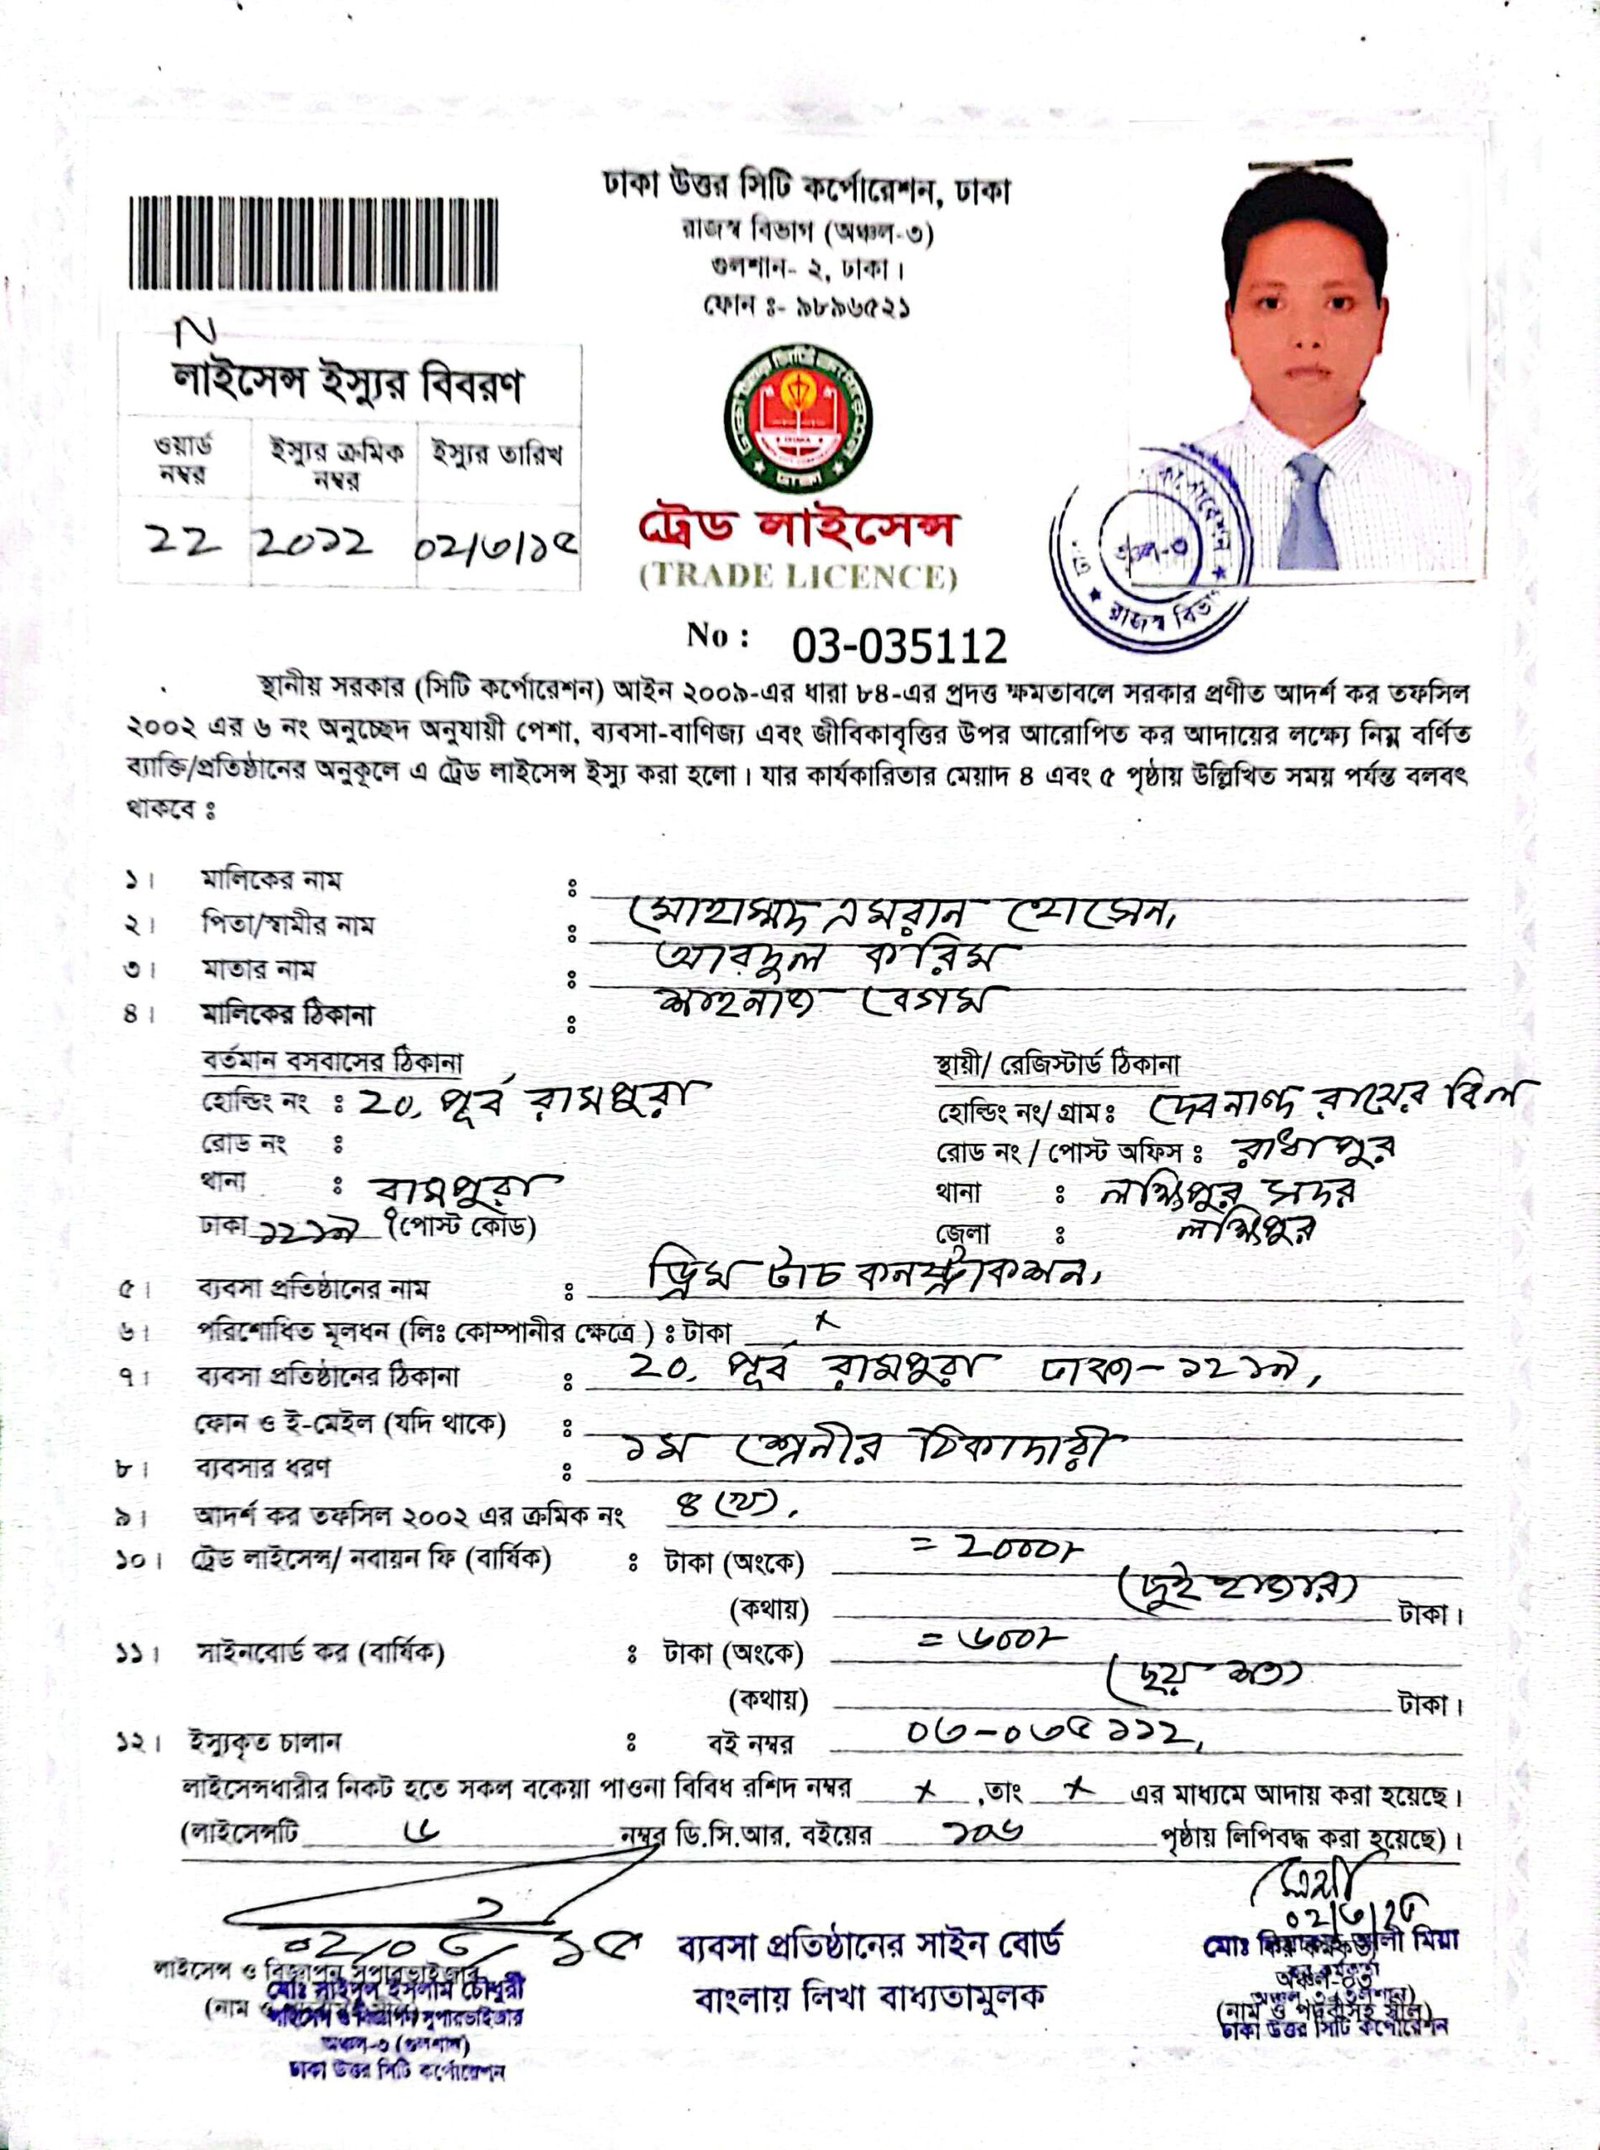 ঢাকা উত্তর সিটি কর্পোরেশন, ঢাকা
রাজস্ব বিভাগ (অঞ্চল-৩)
গুলশান- ২, ঢাকা।
ফোন ঃ- ৯৮৯৬৫২১
N
লাইসেন্স ইস্যুর বিবরণ
ওয়ার্ড নম্বর ইস্যুর ক্রমিক নম্বর ইস্যুর তারিখ
২২ ২০১২ ০২/৬/১৫
ট্রেড লাইসেন্স
(TRADE LICENCE)
No : 03-035112
রাজস্ব বিভাগ
স্থানীয় সরকার (সিটি কর্পোরেশন) আইন ২০০৯-এর ধারা ৮৪-এর প্রদত্ত ক্ষমতাবলে সরকার প্রণীত আদর্শ কর তফসিল
২০০২ এর ৬ নং অনুচ্ছেদ অনুযায়ী পেশা, ব্যবসা-বাণিজ্য এবং জীবিকাবৃত্তির উপর আরোপিত কর আদায়ের লক্ষ্যে নিম্ন বর্ণিত
ব্যাক্তি/প্রতিষ্ঠানের অনুকূলে এ ট্রেড লাইসেন্স ইস্যু করা হলো। যার কার্যকারিতার মেয়াদ ৪ এবং ৫ পৃষ্ঠায় উল্লিখিত সময় পর্যন্ত বলবৎ
থাকবে ঃ
১। মালিকের নাম ঃ মোহাম্মদ এমরান হোসেন,
২। পিতা/স্বামীর নাম ঃ আবদুল করিম
৩। মাতার নাম ঃ শাহনাজ বেগম
৪। মালিকের ঠিকানা ঃ
বর্তমান বসবাসের ঠিকানা
হোল্ডিং নং ঃ ২০, পূর্ব রামপুরা
রোড নং ঃ
থানা ঃ রামপুরা
ঢাকা ১২১৯ (পোস্ট কোড)
স্থায়ী/ রেজিস্টার্ড ঠিকানা
হোল্ডিং নং/ গ্রাম ঃ রায়ের
রোড নং / পোস্ট অফিস ঃ রাধাপুর
থানা ঃ লক্ষ্মিপুর সদর
জেলা ঃ লক্ষ্মিপুর
৫। ব্যবসা প্রতিষ্ঠানের নাম ঃ ড্রিম টাচ কনস্ট্রাকশন,
৬। পরিশোধিত মূলধন (লিঃ কোম্পানীর ক্ষেত্রে ) ঃ টাকা x
৭। ব্যবসা প্রতিষ্ঠানের ঠিকানা ঃ ২০, পূর্ব রামপুরা ঢাকা-১২১৯,
ফোন ও ই-মেইল (যদি থাকে) ঃ
৮। ব্যবসার ধরণ ঃ ১ম শ্রেনীর ঠিকাদারী
৯। আদর্শ কর তফসিল ২০০২ এর ক্রমিক নং ৪
১০। ট্রেড লাইসেন্স/ নবায়ন ফি (বার্ষিক) ঃ টাকা (অংকে) = ২০০০/-
(কথায়) (দুই হাজার) টাকা।
১১। সাইনবোর্ড কর (বার্ষিক) ঃ টাকা (অংকে) = ৬০০/-
(কথায়) (ছয় শত) টাকা।
১২। ইস্যুকৃত চালান ঃ বই নম্বর ০৩-০৩৫১১২,
লাইসেন্সধারীর নিকট হতে সকল বকেয়া পাওনা বিবিধ রশিদ নম্বর x ,তাং x এর মাধ্যমে আদায় করা হয়েছে।
(লাইসেন্সটি ৬ নম্বর ডি.সি.আর. বইয়ের ১০৬ পৃষ্ঠায় লিপিবদ্ধ করা হয়েছে)।
লাইসেন্স ও বিজ্ঞাপন সুপারভাইজার
মোঃ সাইদুল ইসলাম চৌধুরী
লাইসেন্স ও বিজ্ঞাপন সুপারভাইজার
অঞ্চল-৩ (গুলশান)
ঢাকা উত্তর সিটি কর্পোরেশন
ব্যবসা প্রতিষ্ঠানের সাইন বোর্ড
বাংলায় লিখা বাধ্যতামূলক
মোঃ আলী মিয়া
কর কর্মকর্তা
(নাম ও পদবীসহ সীল)
ঢাকা উত্তর সিটি কর্পোরেশন